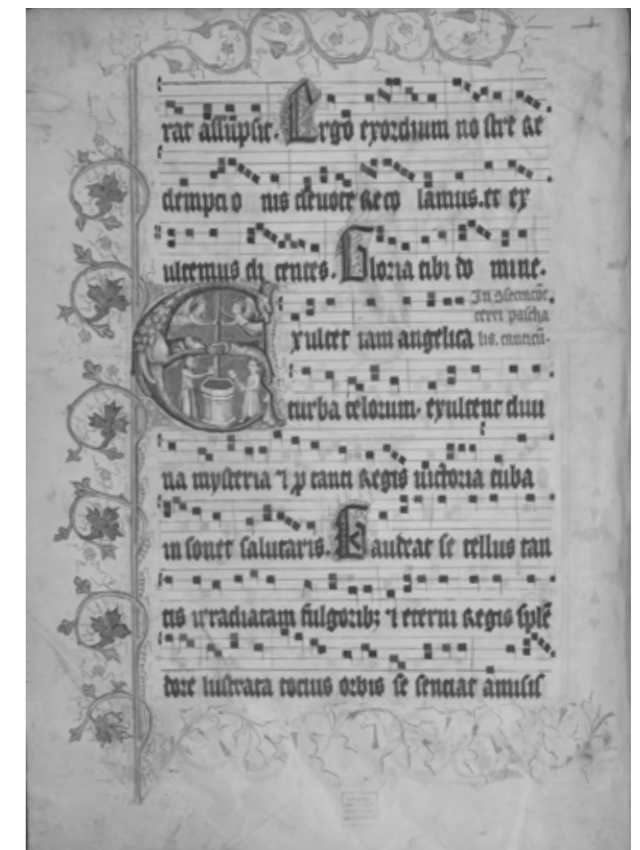 rat assūpsit. Ergo exordium nostre Re
demptionis devote Recolamus. et ex
ultemus dicentes. Gloria tibi domine.
In 9secracōe
cerei pascha
lis. canticū.
Exultet iam angelica
turba celorum. exultent divi
na mysteria ⁊ p tanti Regis victoria tuba
insonet salutaris. Gaudeat se tellus tan
tis irradiatam fulgorib; ⁊ eterni Regis splē
dore lustrata tocius orbis se senciat amisis